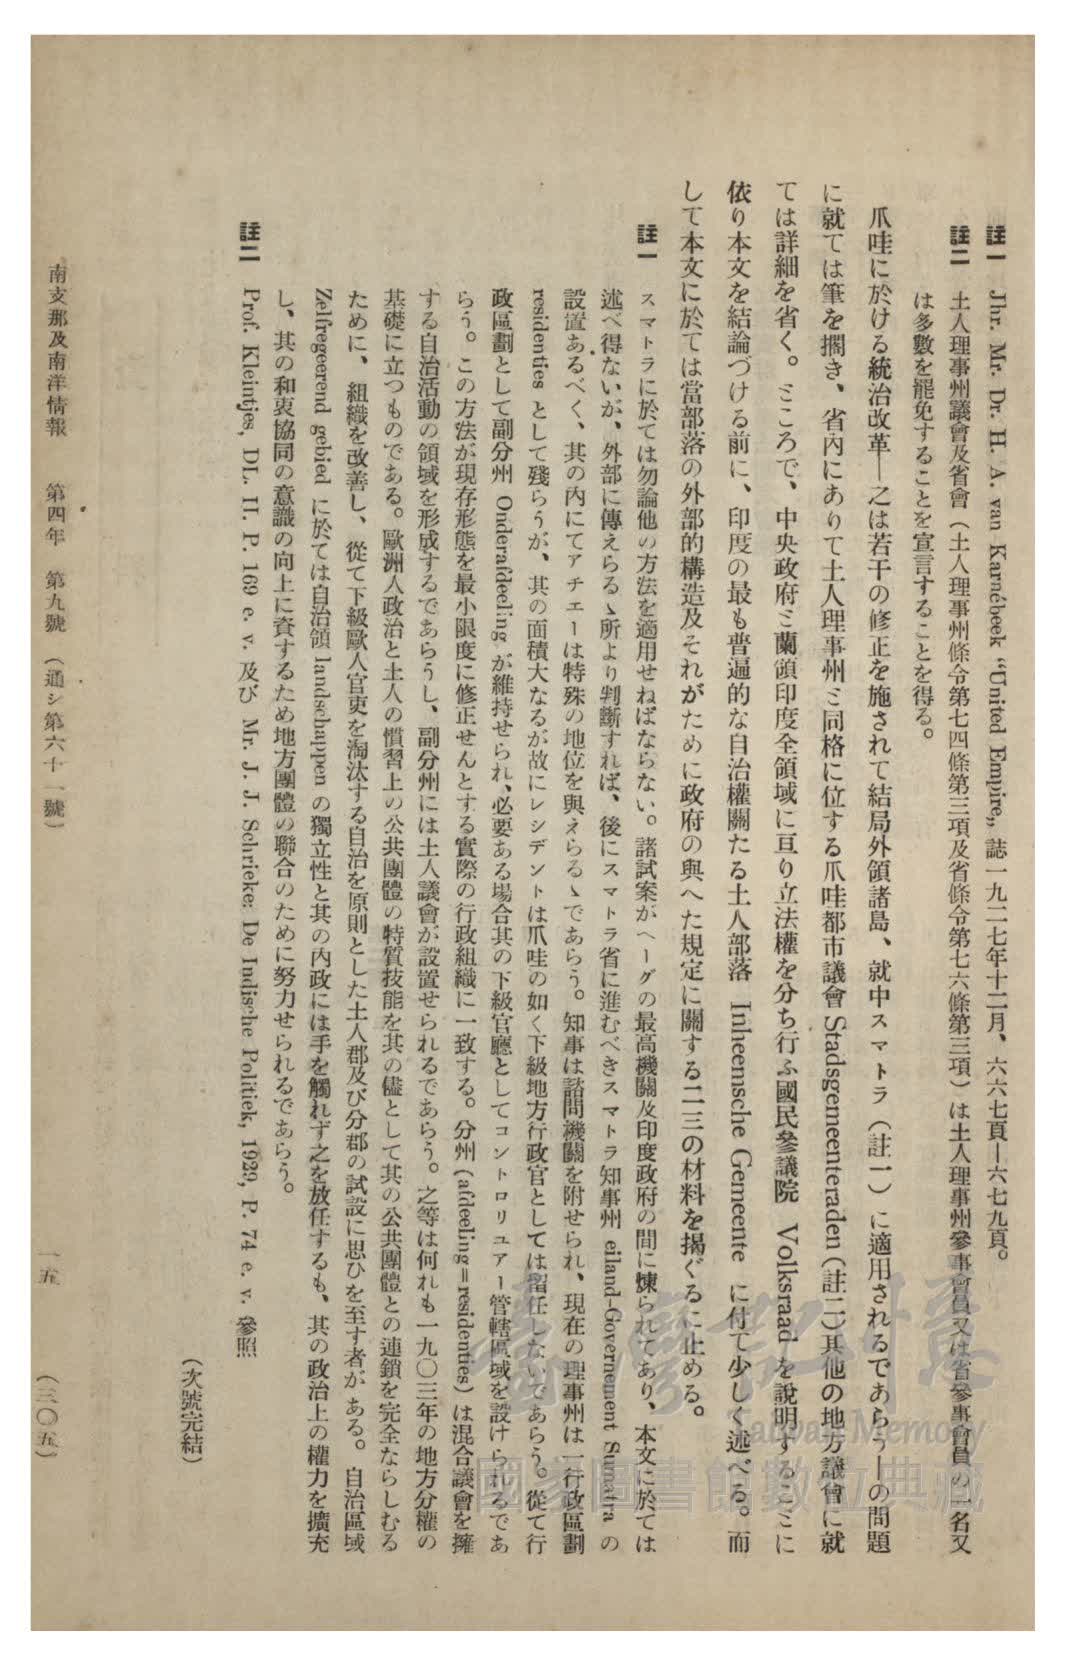 註一 Jhr. Mr. Dr. H. A. van Karnébeek “United Empire„ 誌一九二七年十二月、六六七頁―六七九頁。
註二 土人理事州議會及省會（土人理事州條令第七四條第三項及省條令第七六條第三項）は土人理事州參事會員又は省參事會員の一名又
は多數を罷免することを宣言することを得る。
爪哇に於ける統治改革―之は若干の修正を施されて結局外領諸島、就中スマトラ（註一）に適用されるであらう―の問題
に就ては筆を擱き、省內にありて土人理事州ミ同格に位する爪哇都市議會 Stadsgemeenteraden（註二）其他の地方議會に就
ては詳細を省く。ミころで、中央政府ミ蘭領印度全領域に亘り立法權を分ち行ふ國民參議院 Volksraad を說明するこミに
依り本文を結論づける前に、印度の最も普遍的な自治權關たる土人部落 Inheemsche Gemeente に付て少しく述べる。而
して本文に於ては當部落の外部的構造及それがために政府の與へた規定に關する二三の材料を揭ぐるに止める。
註一 スマトラに於ては勿論他の方法を適用せねばならない。諸試案がヘーグの最高機關及印度政府の間に煉られてあり、本文に於ては
述べ得ないが、外部に傳えらるゝ所より判斷すれば、後にスマトラ省に進むべきスマトラ知事州 eiland-Governement Sumatra の
設置あるべく、其の內にてアチエーは特殊の地位を與えらるゝであらう。知事は諮問機關を附せられ、現在の理事州は一行政區劃
residenties として殘らうが、其の面積大なるが故にレシデントは爪哇の如く下級地方行政官としては留任しないであらう。從て行
政區劃として副分州 Onderafdeeling が維持せられ、必要ある場合其の下級官廳としてコントロリユアー管轄區域を設けられるであ
らう。この方法が現存形態を最小限度に修正せんとする實際の行政組織に一致する。分州 (afdeeling=residenties) は混合議會を擁
する自治活動の領域を形成するであらうし、副分州には土人議會が設置せられるであらう。之等は何れも一九〇三年の地方分權の
基礎に立つものである。歐洲人政治と土人の慣習上の公共團體の特質技能を其の儘として其の公共團體との連鎖を完全ならしむる
ために、組織を改善し、從て下級歐人官吏を淘汰する自治を原則とした土人郡及び分郡の試設に思ひを至す者がある。自治區域
Zelfregeerend gebied に於ては自治領 landschappen の獨立性と其の內政には手を觸れず之を放任するも、其の政治上の權力を擴充
し、其の和衷協同の意識の向上に資するため地方團體の聯合のために努力せられるであらう。
註二 Prof. Kleintjes, DL. II. P. 169 e. v. 及び Mr. J. J. Schrieke: De Indische Politiek, 1929, P. 74 e. v. 參照
（次號完結）
南支那及南洋情報 第四年 第九號 （通シ第六十一號） 一五 （三〇五）
臺灣記憶
Taiwan Memory
國家圖書館數位典藏